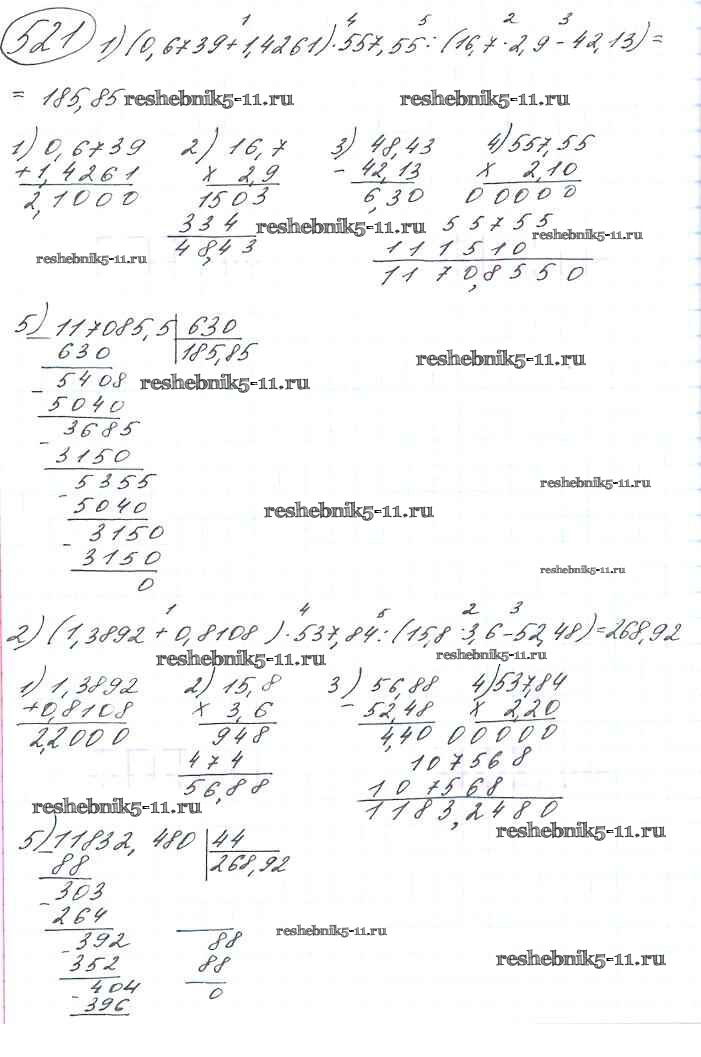 521 1) (0,6739+1,4261)·557,55:(16,7·2,9-42,13)=
1 4 5 2 3
= 185,85 reshebnik5-11.ru reshebnik5-11.ru
1) 0,6739 2) 16,7 3) 48,43 4) 557,55
+1,4261 × 2,9 - 42,13 × 2,10
2,1000 1503 6,30 00000
334 reshebnik5-11.ru 55755 reshebnik5-11.ru
48,43 111510
reshebnik5-11.ru 1170,8550
5) 117085,5 630
630 185,85
reshebnik5-11.ru
- 5408 reshebnik5-11.ru
5040
- 3685
3150
- 5355 reshebnik5-11.ru
5040 reshebnik5-11.ru
- 3150
3150 reshebnik5-11.ru
0
1 4 5 2 3
2) (1,3892+0,8108)·537,84:(15,8·3,6-52,48)=268,92
reshebnik5-11.ru reshebnik5-11.ru
1) 1,3892 2) 15,8 3) 56,88 4) 537,84
+0,8108 × 3,6 - 52,48 × 2,20
2,2000 948 4,40 00000
474 107568
56,88 107568
reshebnik5-11.ru 1183,2480
reshebnik5-11.ru
5) 11832,480 44
88 268,92
- 303
264
- 392 88 reshebnik5-11.ru
352 88 reshebnik5-11.ru
- 404 0
396